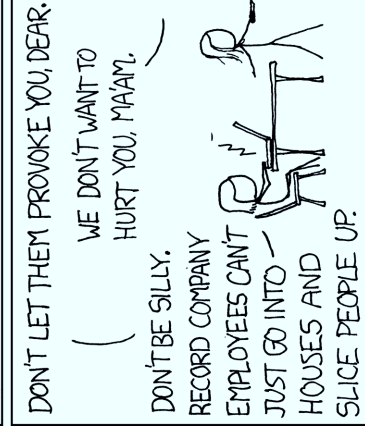 DON'T LET THEM PROVOKE YOU, DEAR.
WE DON'T WANT TO
HURT YOU, MA'AM.
DON'T BE SILLY.
RECORD COMPANY
EMPLOYEES CAN'T
JUST GO INTO
HOUSES AND
SLICE PEOPLE UP.